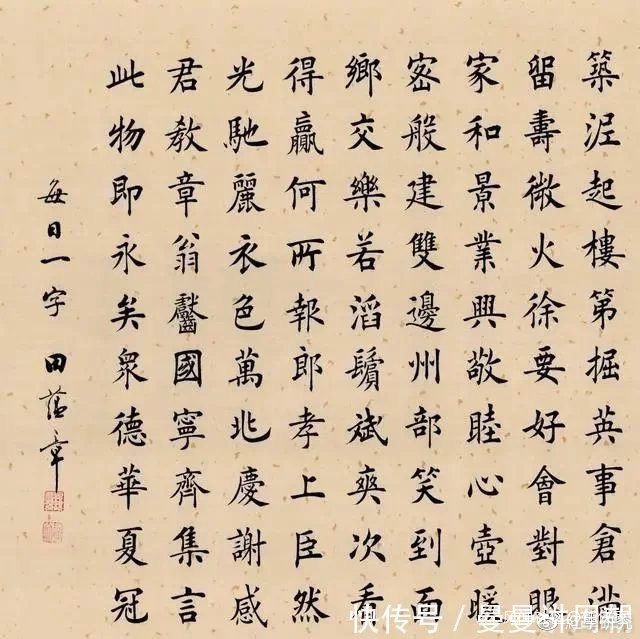 築泥起樓第掘英事倉
留壽微火徐要好會對眼
家和景業興敬睦心壺暖
密般建雙邊州部笑到面
鄉交樂若滔鬢斌爽次看
得贏何所報郎孝上臣然
光馳麗衣色萬兆慶謝感
君教章翁國寧齊集言
此物即永矣眾德華夏冠
每日一字 田蘊章
快传号 / 曼曼讲